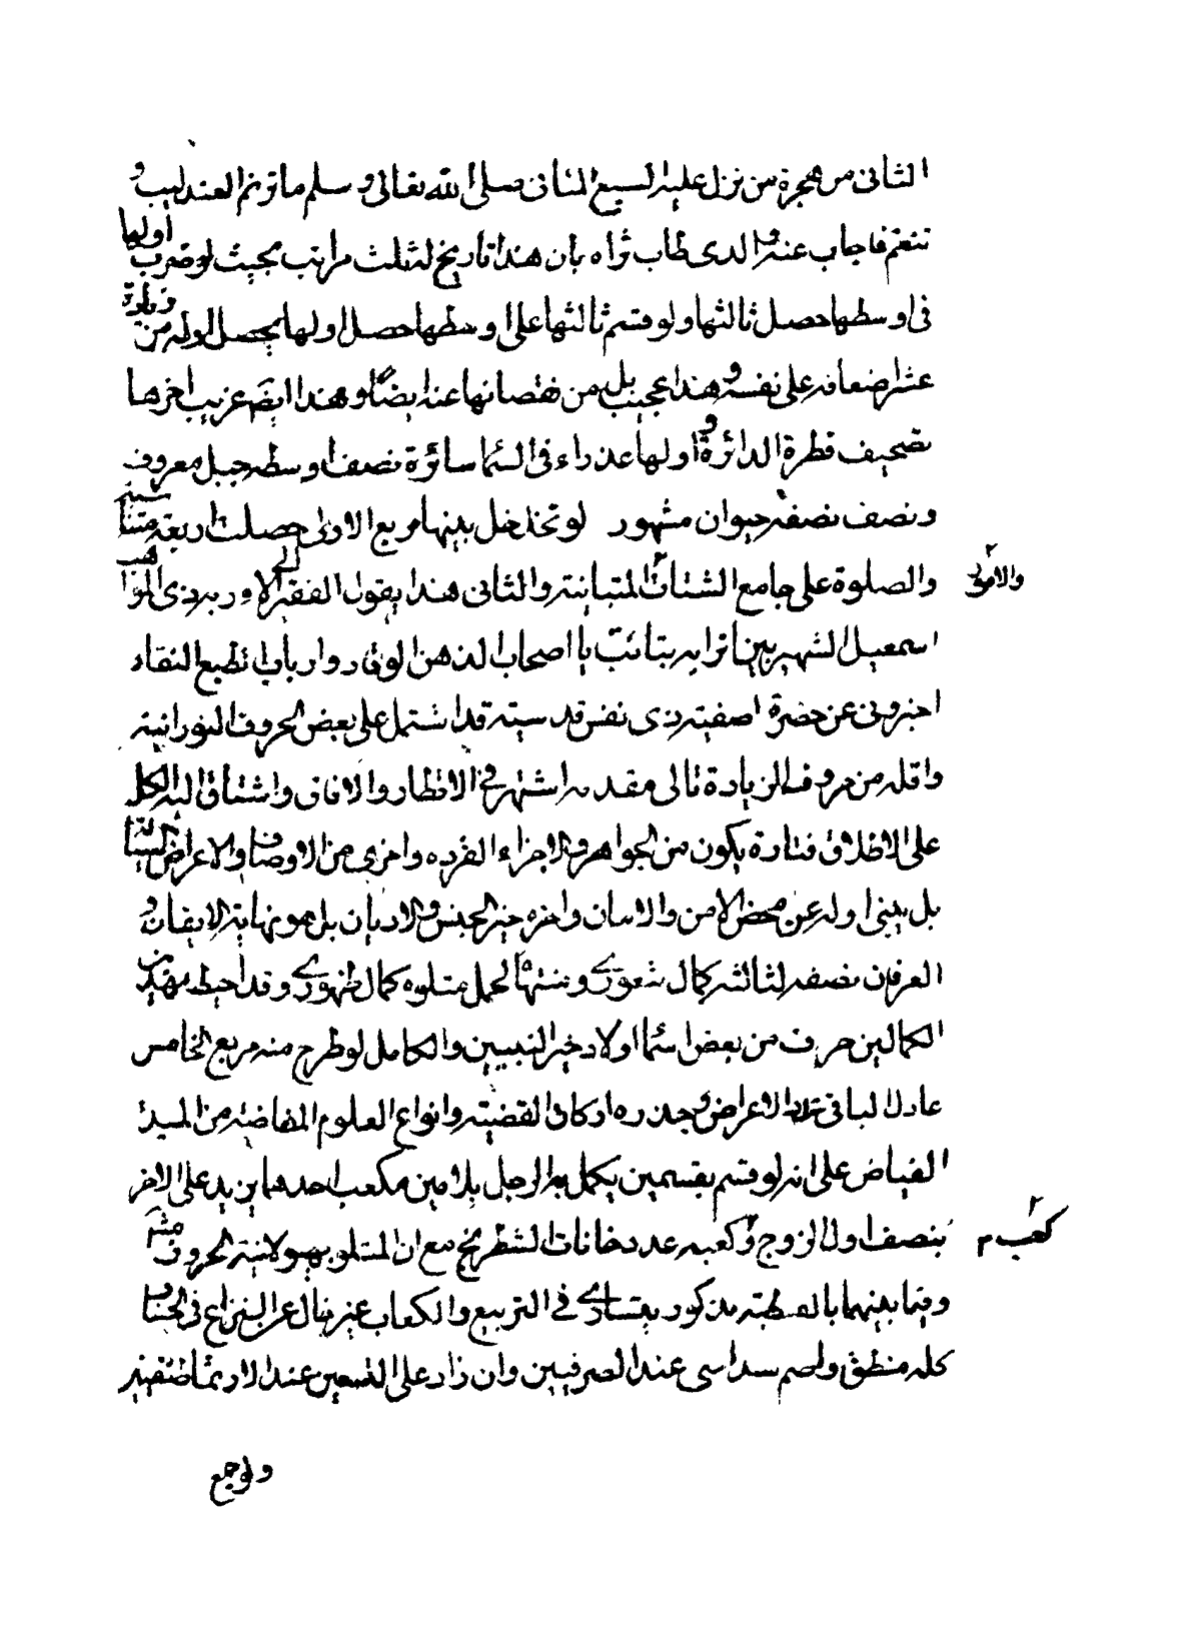 الثانى من هجرة من نزل عليه السبع المثانى صلى الله تعالى وسلم ما ترنم العندليب و
تنغم فاجاب عنه والدى طاب ثراه بان هذا تاريخ لثلث مراتب بحيث لو ضرب اولها
فى اوسطها حصل ثالثها ولو قسم ثالثها على اوسطها حصل اولها يحصل اوله من زيادة
عشر اضعافه على نفسه وهذا عجيب بل من نقصانها عنه ايضا وهذا ايضا غريب اخرها
تصحيف قطرة الدائرة و اولها عدد راء فى السما سائرة نصف اوسطه جبل معروف
ونصف نصفه حيوان مشهور لو تخلخل بينها مربع الاولى حصلت اربعة متناسبة
والصلوة على جامع الشتات المتباينة والثانى هذا يقول الفقير الى الاو ربه ذى المواهب
والاولى
اسمعيل الشهير بين اترابه بتائب يا اصحاب الذهن الوقاد وارباب الطبع النقاد
اخبرونى عن حضرة اصفية ذى نفس قدسية قد اشتمل على بعض الحروف النورانية
واقله من حروف الزيادة تالى مقدمه اشتهر فى الاقطار والافاق واشتاق اليه الكل
على الاطلاق فتارة يكون من الجواهر والاجزاء الفرده واخرى من الاوصاف والاعراض
بل يبنى اوله عن محض الامن والامان واخره خير الجنس والاديان بل هو نهاية الايقان و
العرفان نصفه لثالثه كمال شعورى ومنتهاه لحمل متلوه كمال ظهورى وقد احيط بهذين
الكمالين حرف من بعض اسما اولاد خير النبيين والكامل لو طرح منه مربع الخامس
عادل الباقى عدد الاعراض وجذره اركان القضية وانواع العلوم المفاضة من المبدئ
الفياض على انه لو قسم بقسمين يكمل به الرجل بلامين مكعب احدهما يزيد على الاخر
بنصف اول الزوج وكعبه عدد خانات الشطرنج مع ان المتلو بهيولانية الحروف
كعب م
وفيما بينهما بالعطية مذكور يتساوى فى التربيع والكعاب غير مثال عن النزاع فى
كله منطق واصم سداسى عند الصرفيين وان زاد على التسعين عند الارثماطيقيين
ولو جمع